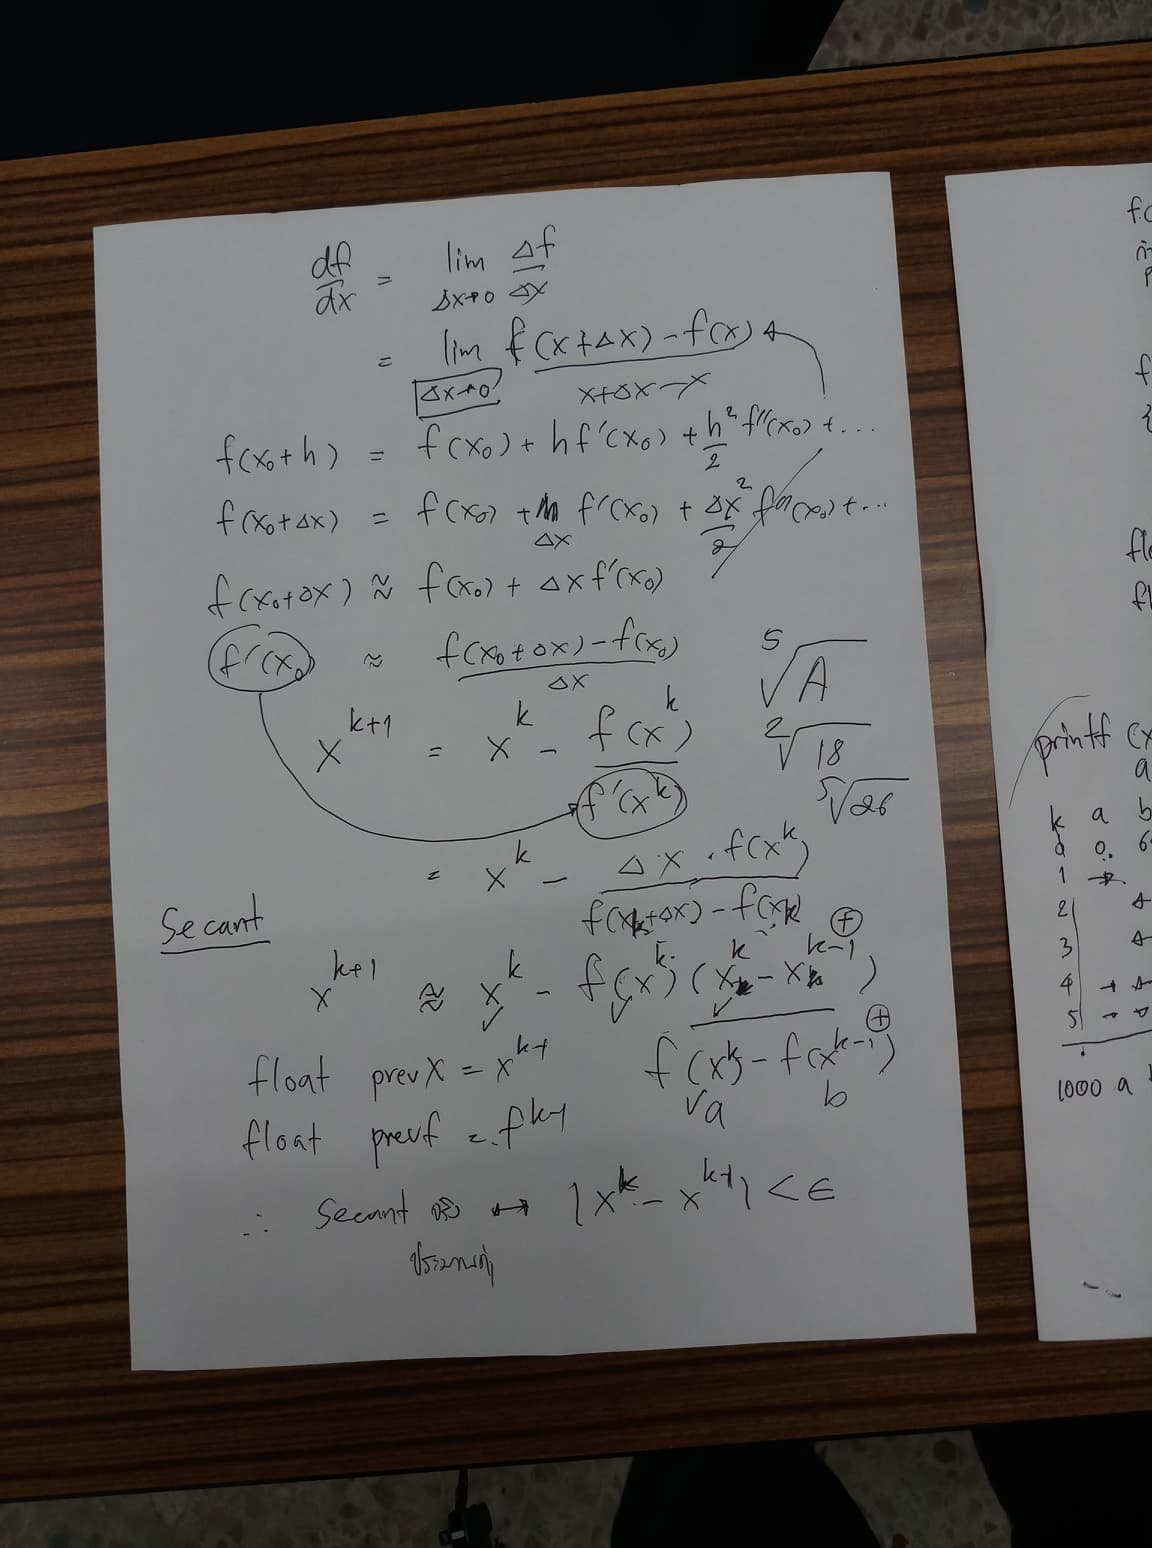 df/dx = lim Δx→0 Δf/Δx
= lim Δx→0 f(x+Δx)-f(x) / x+Δx-x
f(x₀+h) = f(x₀) + hf'(x₀) + h²/2 f''(x₀) + ...
f(x₀+Δx) = f(x₀) + Δx f'(x₀) + Δx²/2 f''(x₀) + ...
f(x₀+Δx) ≈ f(x₀) + Δx f'(x₀)
f'(x₀) ≈ f(x₀+Δx)-f(x₀) / Δx
⁵√A
x^{k+1} = x^k - f(x^k) / f'(x^k)
²√18
⁵√26
= x^k - Δx · f(x^k) / f(x_k+Δx)-f(x_k)
Secant
x^{k+1} ≈ x^k - f(x^k)(x^k - x^{k-1}) / f(x^k) - f(x^{k-1})
a b
float prevX = x^{k-1}
float prevf = f^{k-1}
∴ Secant |x^k - x^{k-1}| < ε
printf (x
a
k a b
0 0. 6
1
2
3
4
5
1000 a